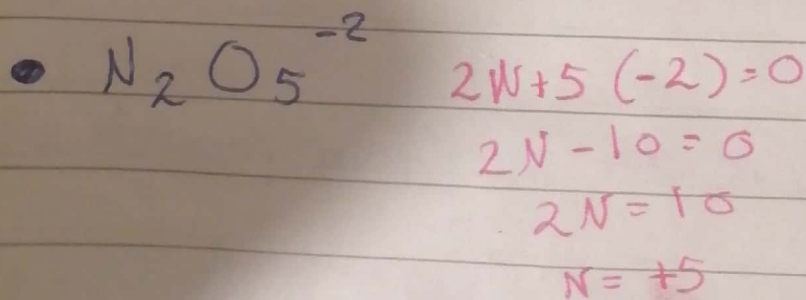 • N₂O₅⁻²
2N+5(-2)=0
2N-10=0
2N=10
N=+5